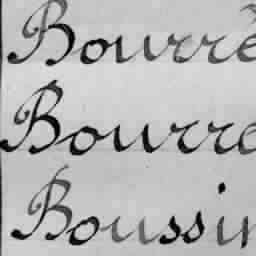 Bourrè
Bourre
Boussin